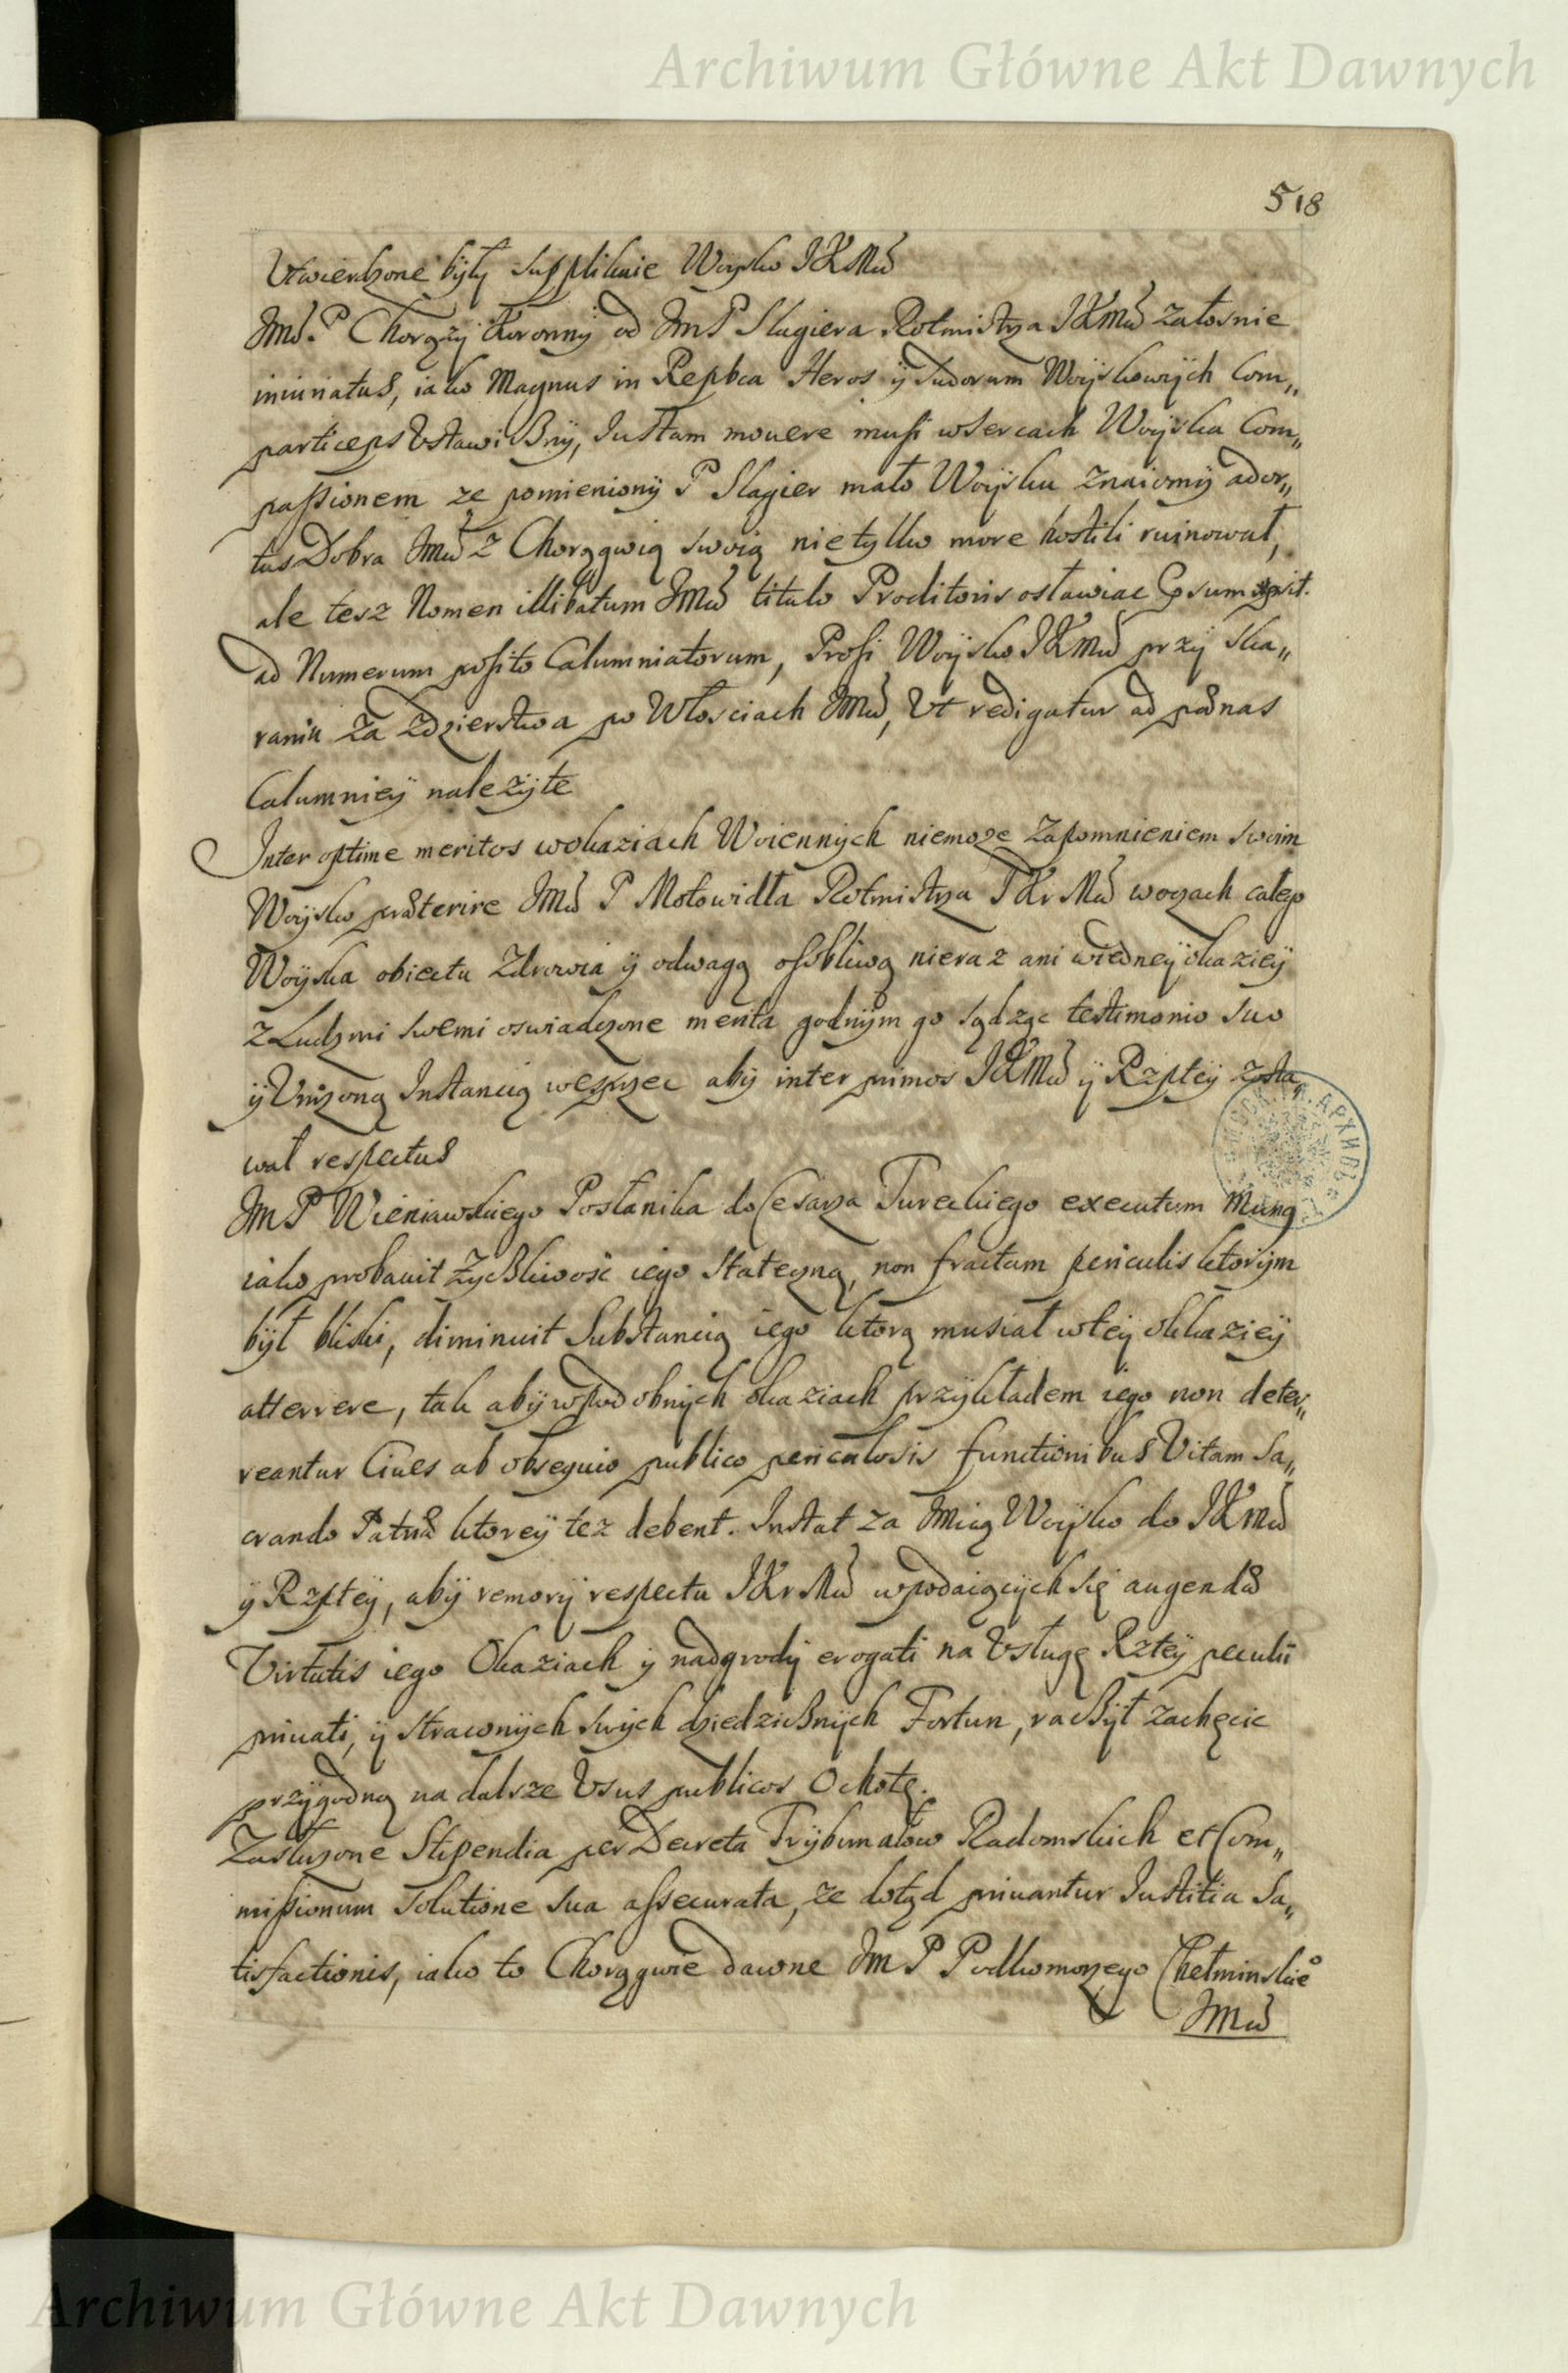 Archiwum Główne Akt Dawnych
518
Utwierdzone były supplikuie Woysko JKMći
Jmć P Chorąży Koronny od Jm P Slagiera Rotmistrza JKMći załosnie
iniuriatus, iako Magnus in Repbca Heros ÿ Sudorum Woÿskowych Com„
particeps Ustawiczny, Iustam mouere musi wsercach Woÿska Com„
passionem ze pomieniony P Slagier mało Woÿsku znaiomy ador„
tus Dobra Jmći z Chorągwią swoią nietylko more hostili ruinował,
ale tesz Nomen illibatum Jmći titulo Proditoris osławiac
ad Numerum posito Calumniatorum, Prosi Woÿsko JKMći przÿ ska„
raniu za zdzierstwa po Włosciach Jmći, Ut redigatur ad pænas
Calumnieÿ nalezÿte
Inter optime meritos wokaziach Woiennych niemoze zapomnieniem swoim
Woÿsko præterire Jmći P Mołowidła Rotmistrza JKrMći woczach całego
Woÿska obiectu Zdrowia ÿ odwagą osobliwą nieraz ani wiedneÿ okazieÿ
z Ludzmi swemi oswiadczone merita godnÿm go sądząc testimonio suo
ÿ Unizoną Instancią wesprzec abÿ inter primos JKMći ÿ Rzpteÿ zosta„
wał respectus
Jm P Wieniawskiego Posłanika do Cesarza Tureckiego executum Munq
iako probauit Zyczliwosc iego stateczną, non fractam periculis ktorÿm
bÿł bliski, diminuit Substancią iego ktorą musiał wteÿ okkazieÿ
atterrere, tak abÿ wpodobnych okaziach przÿkładem iego non deter„
reantur Ciues ab obsequio publico periculosis functionibus Vitam Sa„
crando Patriæ ktoreÿ tez debent. Instat za Jmią Woÿsko do JKMći
ÿ Rzpteÿ, abÿ remorÿ respectu JKrMći wpodaiącÿch się augendæ
Virtutis iego Okaziach ÿ nadgrodÿ erogati na Usługę Rzteÿ peculii
priuati, ÿ straconÿch swÿch dziedzicznÿch Fortun, raczÿł zachęcic
przÿgodną na dalsze Usus publicos Ochotę.
Zasłuzone Stipendia per Decreta Trÿbunałow Radomskich et Com„
missionum Solutione sua assecurata, ze dotąd priuantur Iustitia Sa„
tisfactionis, iako to Chorągwie dawne Jm P Podkomorzego Chełminskie°
Jmći
Archiwum Główne Akt Dawnych